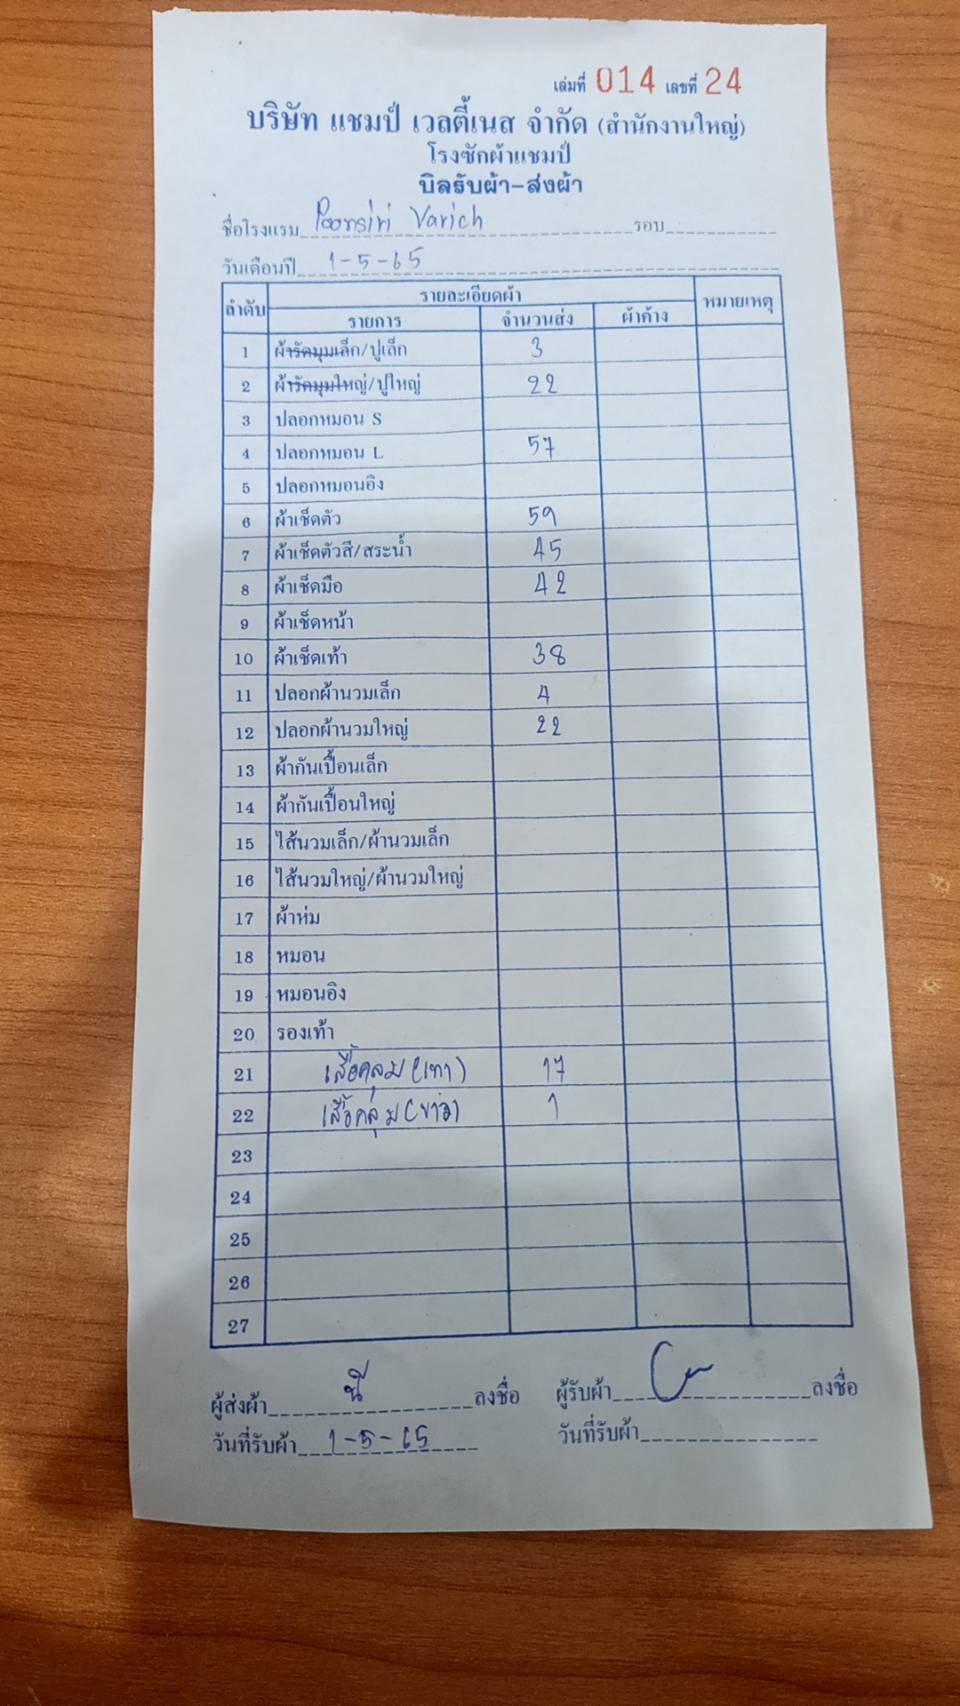 เล่มที่ 014 เลขที่ 24
บริษัท แชมป์ เวลตี้เนส จำกัด (สำนักงานใหญ่)
โรงซักผ้าแชมป์
บิลรับผ้า-ส่งผ้า
ชื่อโรงแรม Poonsiri Varich รอบ
วันเดือนปี 1-5-65
ลำดับ รายละเอียดผ้า หมายเหตุ
รายการ จำนวนส่ง ผ้าค้าง
1 ผ้ารัดมุมเล็ก/ปูเล็ก 3
2 ผ้ารัดมุมใหญ่/ปูใหญ่ 22
3 ปลอกหมอน S
4 ปลอกหมอน L 57
5 ปลอกหมอนอิง
6 ผ้าเช็ดตัว 59
7 ผ้าเช็ดตัวสี/สระน้ำ 45
8 ผ้าเช็ดมือ 42
9 ผ้าเช็ดหน้า
10 ผ้าเช็ดเท้า 38
11 ปลอกผ้านวมเล็ก 4
12 ปลอกผ้านวมใหญ่ 22
13 ผ้ากันเปื้อนเล็ก
14 ผ้ากันเปื้อนใหญ่
15 ไส้นวมเล็ก/ผ้านวมเล็ก
16 ไส้นวมใหญ่/ผ้านวมใหญ่
17 ผ้าห่ม
18 หมอน
19 หมอนอิง
20 รองเท้า
21 เสื้อคลุม (เทา) 17
22 เสื้อคลุม (ขาว) 1
23
24
25
26
27
ผู้ส่งผ้า นี ลงชื่อ ผู้รับผ้า ลงชื่อ
วันที่รับผ้า 1-5-65 วันที่รับผ้า